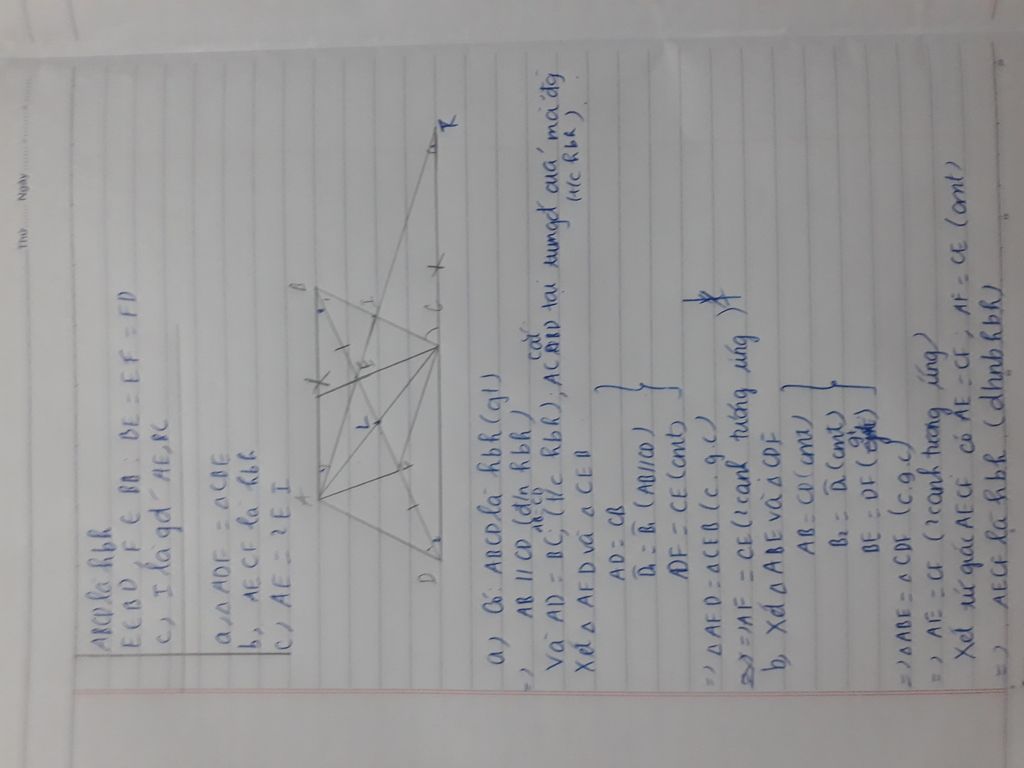 Thứ Ngày
ABCD là hbh
E, F ∈ BD : BE = EF = FD
c, I là gđ AE, BC
a, △ ADF = △ CBE
b, AECF là hbh
c, AE = 2EI
A B D C E F I K
a) Có: ABCD là hbh (gt)
=> AB // CD (đ/n hbh)
và AD = BC; AB = CD (t/c hbh); AC cắt BD tại trung đ của mỗi đg (t/c hbh)
Xét △ AED và △ CEB
AD = CB
D₁ = B₁ (AB//CD)
DF = CE (cmt)
=> △ AED = △ CEB (c.g.c)
=> AF = CE (2 cạnh tương ứng)
b, Xét △ ABE và △ CDF
AB = CD (cmt)
B₂ = D₂ (cmt)
BE = DF (gt)
=> △ ABE = △ CDF (c.g.c)
=> AE = CF (2 cạnh tương ứng)
Xét tứ giác AECF có AE = CF; AF = CE (cmt)
=> AECF là hbh (dhnb hbh)